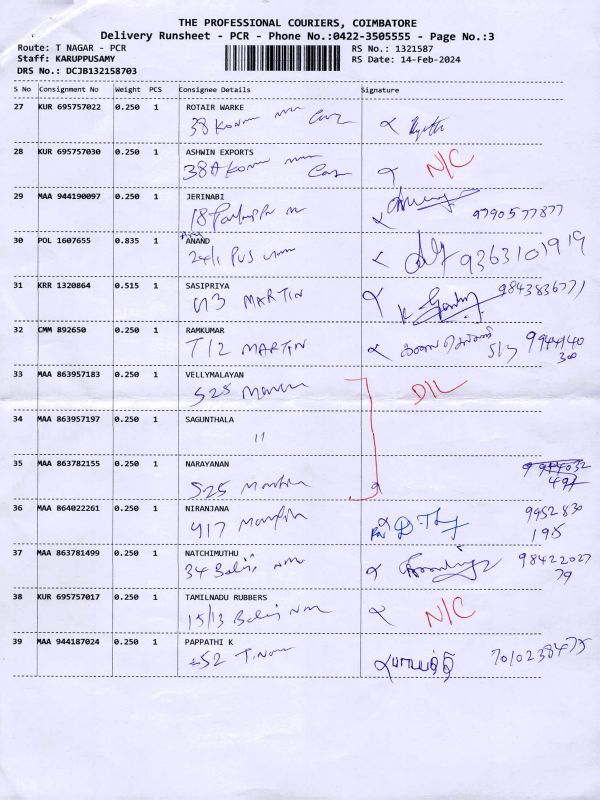 THE PROFESSIONAL COURIERS, COIMBATORE
Delivery Runsheet - PCR - Phone No.:0422-3505555 - Page No.:3
Route: T NAGAR - PCR RS No.: 1321587
Staff: KARUPPUSAMY RS Date: 14-Feb-2024
DRS No.: DCJB132158703
S No Consignment No Weight PCS Consignee Details Signature
27 KUR 695757022 0.250 1 ROTAIR WARKE
38
28 KUR 695757030 0.250 1 ASHWIN EXPORTS
38A N/C
29 MAA 944190097 0.250 1 JERINABI
18 9790577877
30 POL 1607655 0.835 1 ANAND
24/1 9363101919
31 KRR 1320864 0.515 1 SASIPRIYA
U13 MARTIN 9843836771
32 CMM 892650 0.250 1 RAMKUMAR
T12 MARTIN S/3 9944140
300
33 MAA 863957183 0.250 1 VELLYMALAYAN
S25 Martin D/L
34 MAA 863957197 0.250 1 SAGUNTHALA
11
35 MAA 863782155 0.250 1 NARAYANAN
S25 Martin
36 MAA 864022261 0.250 1 NIRANJANA
U17 Martin 9952830
195
37 MAA 863781499 0.250 1 NATCHIMUTHU
34 Balaji 98422027
79
38 KUR 695757017 0.250 1 TAMILNADU RUBBERS
15/13 Balaji N/C
39 MAA 944187024 0.250 1 PAPPATHI K
52 7010238475